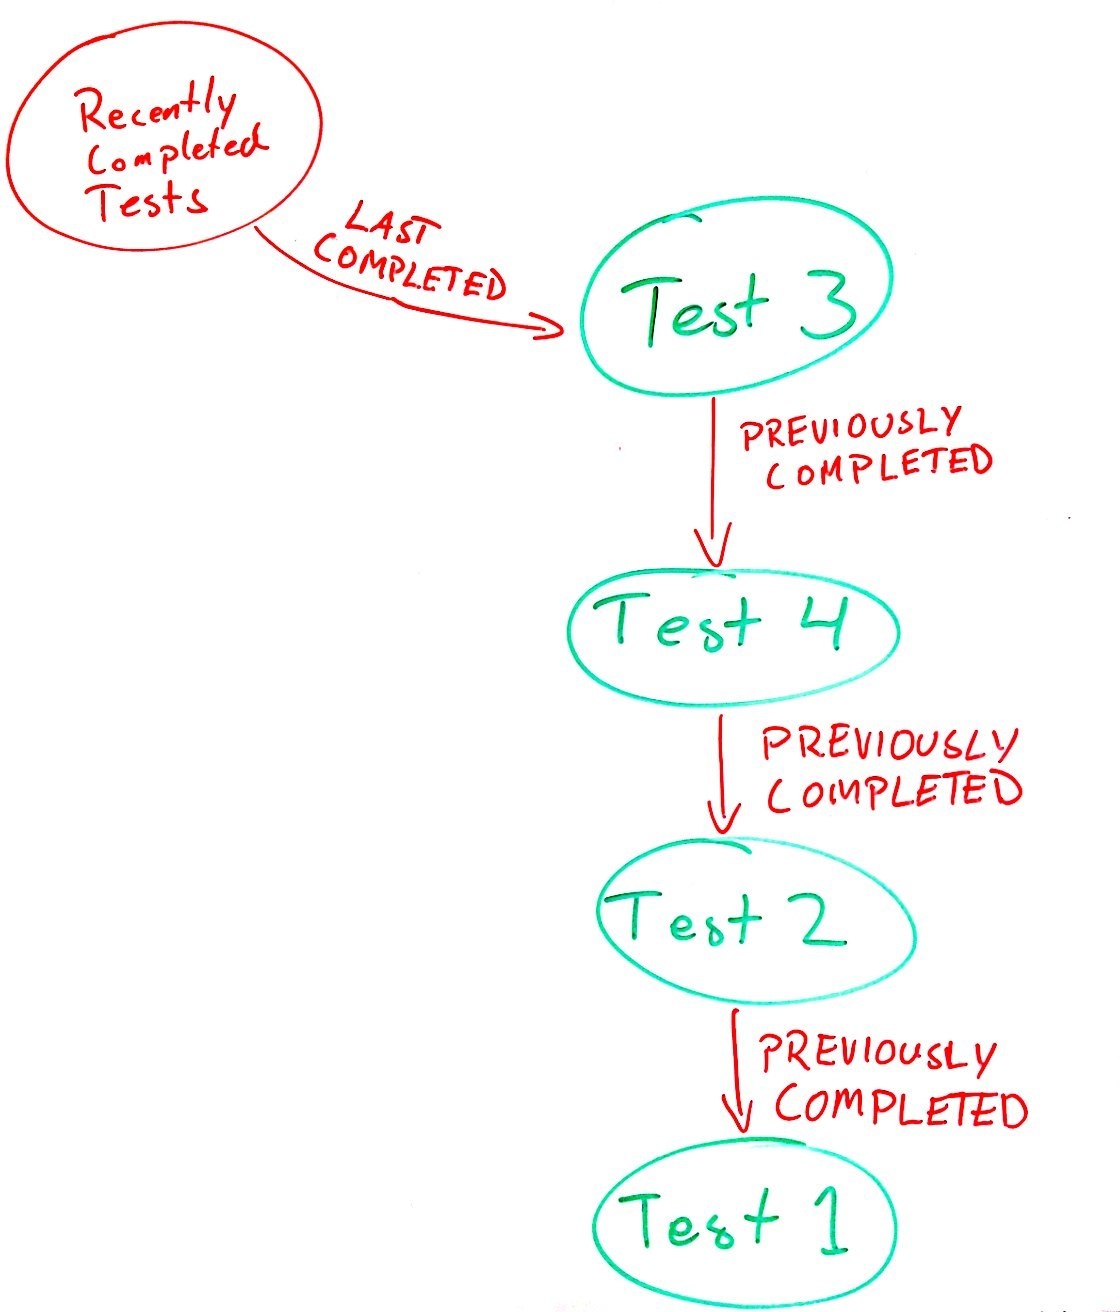 Recently
Completed
Tests
LAST
COMPLETED
Test 3
PREVIOUSLY
COMPLETED
Test 4
PREVIOUSLY
COMPLETED
Test 2
PREVIOUSLY
COMPLETED
Test 1